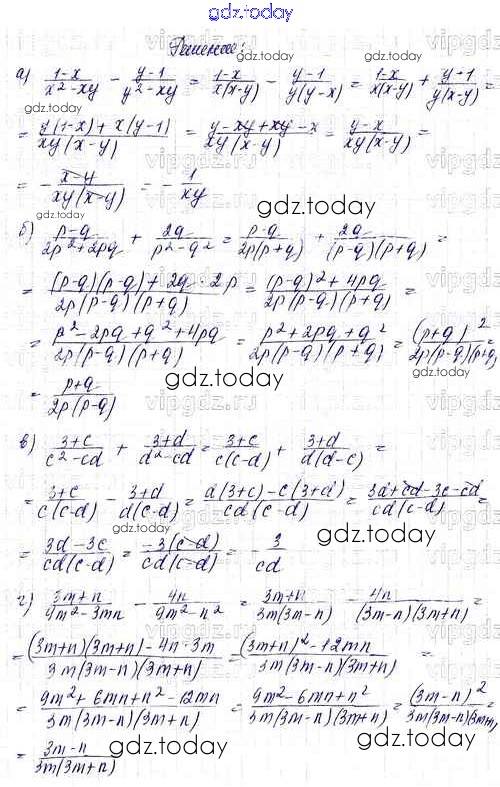 gdz.today
Решение:
а) (1-x)/(x²-xy) - (y-1)/(y²-xy) = (1-x)/(x(x-y)) - (y-1)/(y(y-x)) = (1-x)/(x(x-y)) + (y-1)/(y(x-y)) =
= (y(1-x)+x(y-1))/(xy(x-y)) = (y-xy+xy-x)/(xy(x-y)) = (y-x)/(xy(x-y)) =
= - (x-y)/(xy(x-y)) = - 1/(xy)
б) (p-q)/(2p²+2pq) + 2q/(p²-q²) = (p-q)/(2p(p+q)) + 2q/((p-q)(p+q)) =
= ((p-q)(p-q)+2q·2p)/(2p(p-q)(p+q)) = ((p-q)²+4pq)/(2p(p-q)(p+q)) =
= (p²-2pq+q²+4pq)/(2p(p-q)(p+q)) = (p²+2pq+q²)/(2p(p-q)(p+q)) = (p+q)²/(2p(p-q)(p+q)) =
= (p+q)/(2p(p-q))
в) (3+c)/(c²-cd) + (3+d)/(d²-cd) = (3+c)/(c(c-d)) + (3+d)/(d(d-c)) =
= (3+c)/(c(c-d)) - (3+d)/(d(c-d)) = (d(3+c)-c(3+d))/(cd(c-d)) = (3d+cd-3c-cd)/(cd(c-d)) =
= (3d-3c)/(cd(c-d)) = (-3(c-d))/(cd(c-d)) = - 3/(cd)
г) (3m+n)/(9m²-3mn) - 4n/(9m²-n²) = (3m+n)/(3m(3m-n)) - 4n/((3m-n)(3m+n)) =
= ((3m+n)(3m+n)-4n·3m)/(3m(3m-n)(3m+n)) = ((3m+n)²-12mn)/(3m(3m-n)(3m+n)) =
= (9m²+6mn+n²-12mn)/(3m(3m-n)(3m+n)) = (9m²-6mn+n²)/(3m(3m-n)(3m+n)) = (3m-n)²/(3m(3m-n)(3m+n)) =
= (3m-n)/(3m(3m+n))
gdz.today